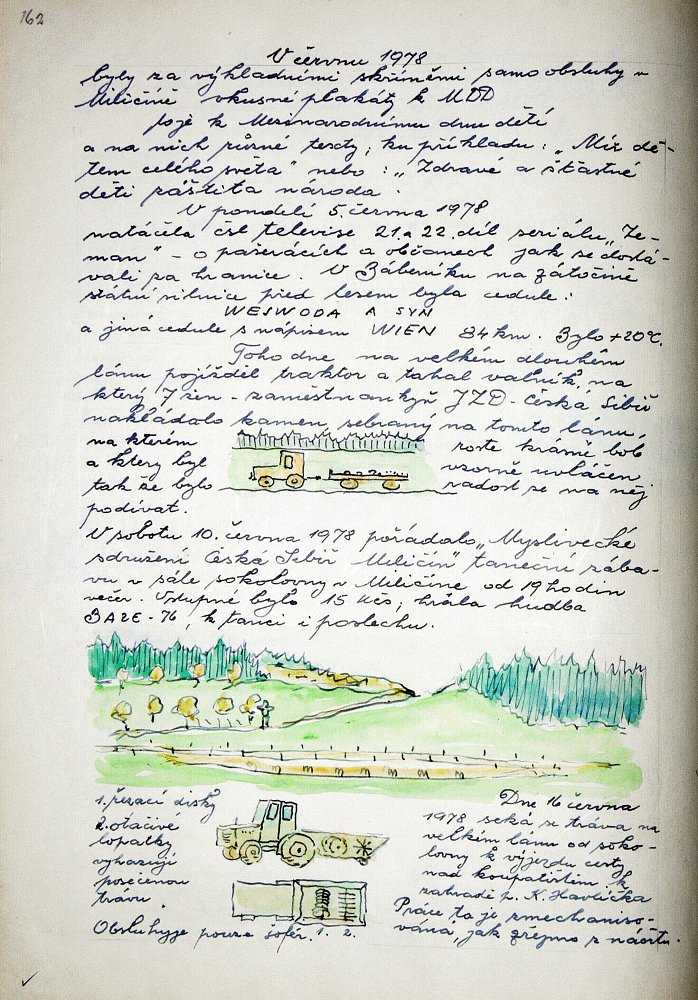 162
V červnu 1978
byly za výkladními skříněmi samoobsluhy v
Miličíně vkusné plakáty k MDD
to je k Mezinarodnímu dnu dětí
a na nich různé texty, ku příkladu: „Mír dě-
tem celého světa" nebo: „Zdravé a šťastné
děti záštita národa.
V pondelí 5. června 1978
natáčela čsl televise 21. a 22. díl seriálu „Ze-
man" - o pašerácích a občanech jak se dostá-
vali za hranice. V Záberiku na zátočině
státní silnice před lesem byla cedule:
WEJWODA A SYN
a jiná cedule s nápisem WIEN 84 km. Bylo +20°C.
Toho dne na velkém dlouhém
lánu pojížděl traktor a tahal valník, na
který 7 žen - zaměstnankyň JZD - Česká Sibiř
nakládalo kamen, sebraný na tomto lánu,
na kterém roste krásně bob
a ktery byl vzorně uvláčen
tak že bylo radost se na něj
podívat.
V sobotu 10. června 1978 pořádalo „Myslivecké
sdružení Česká Sibiř Miličín" taneční zába-
vu v sále sokolovny v Miličíně od 19 hodin
večer. Vstupné bylo 15 Kčs; hrála hudba
BAZE-76, k tanci i poslechu.
1. řezací disky
2. otáčivé
lopatky
vyhazují
posečenou
trávu.
Obsluhuje pouze šofér. 1. 2.
Dne 16 června
1978 seká se tráva na
velkém lánu od soko-
lovny k výjezdu cesty
nad koupalištěm k
zahradě p. K. Havlíčka
Práce ta je zmechaniso-
vána, jak zřejmo z náčrtu.